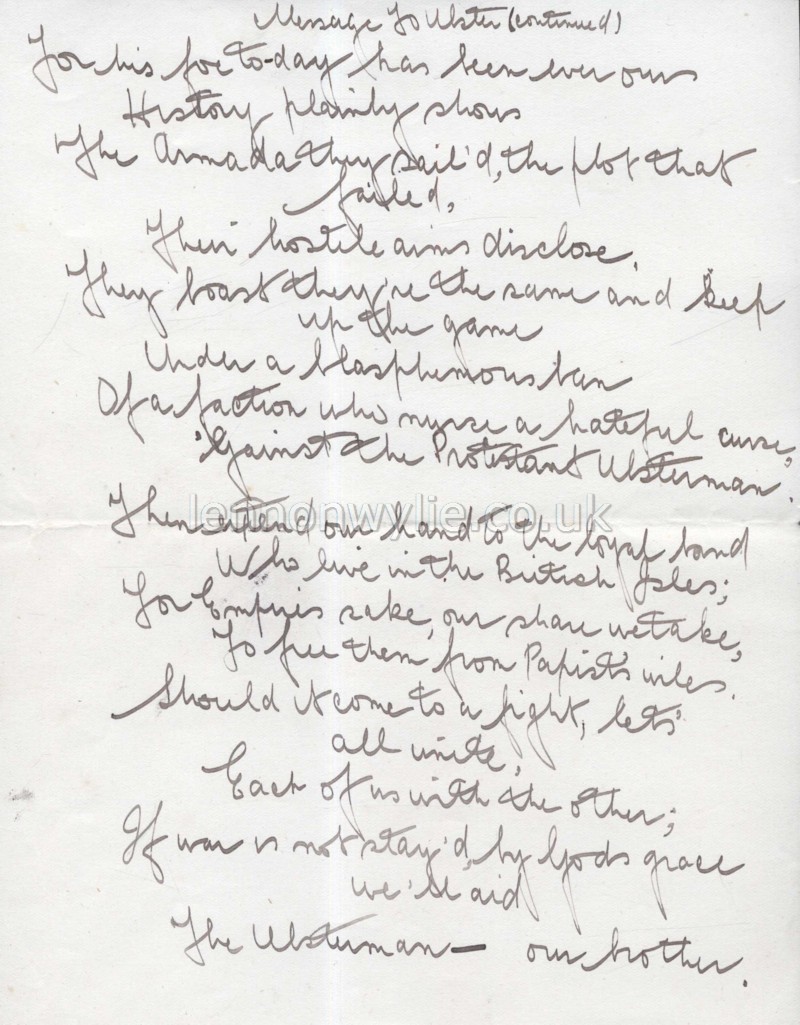 Message To Ulster (continued)
For his foe to-day has been ever ours
History plainly shows
The Armada they sail'd, the plot that
failed,
Their hostile aims disclose.
They boast they're the same and keep
up the game
Under a blasphemous ban
Of a faction who nurse a hateful curse,
'Gainst the Protestant Ulsterman.
Then extend our hand to the loyal band
lennonwylie.co.uk
Who live in the British Isles;
For Empire's sake, our share we take,
To free them from Papist's wiles.
Should it come to a fight, let's
all unite,
Each of us with the other;
If war is not stay'd, by God's grace
we'll aid
The Ulsterman — our brother.